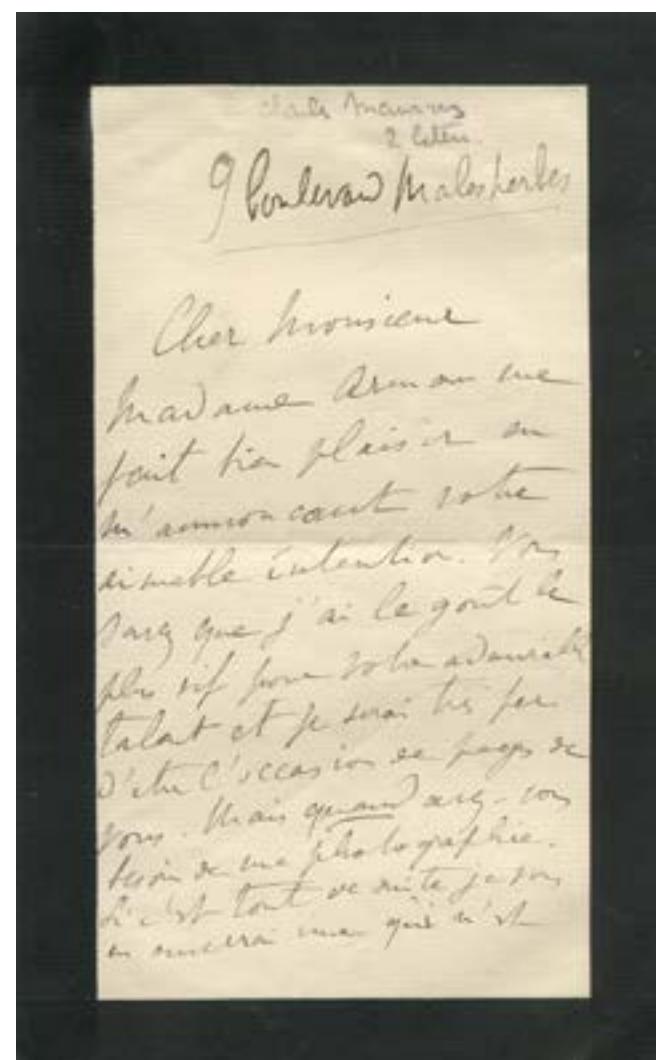 Charles Maurras
2 lettres
9 boulevard Malesherbes
Cher Monsieur
Madame Arman me
fait bien plaisir en
m'annoncant votre
aimable intention. Vous
savez que j'ai le goût le
plus vif pour votre admirable
talent et je serai très fier
d'être l'occasion de pages de
vous. Mais quand avez-vous
besoin de ma photographie.
Si c'est tout de suite je vous
en enverrai une qui n'est